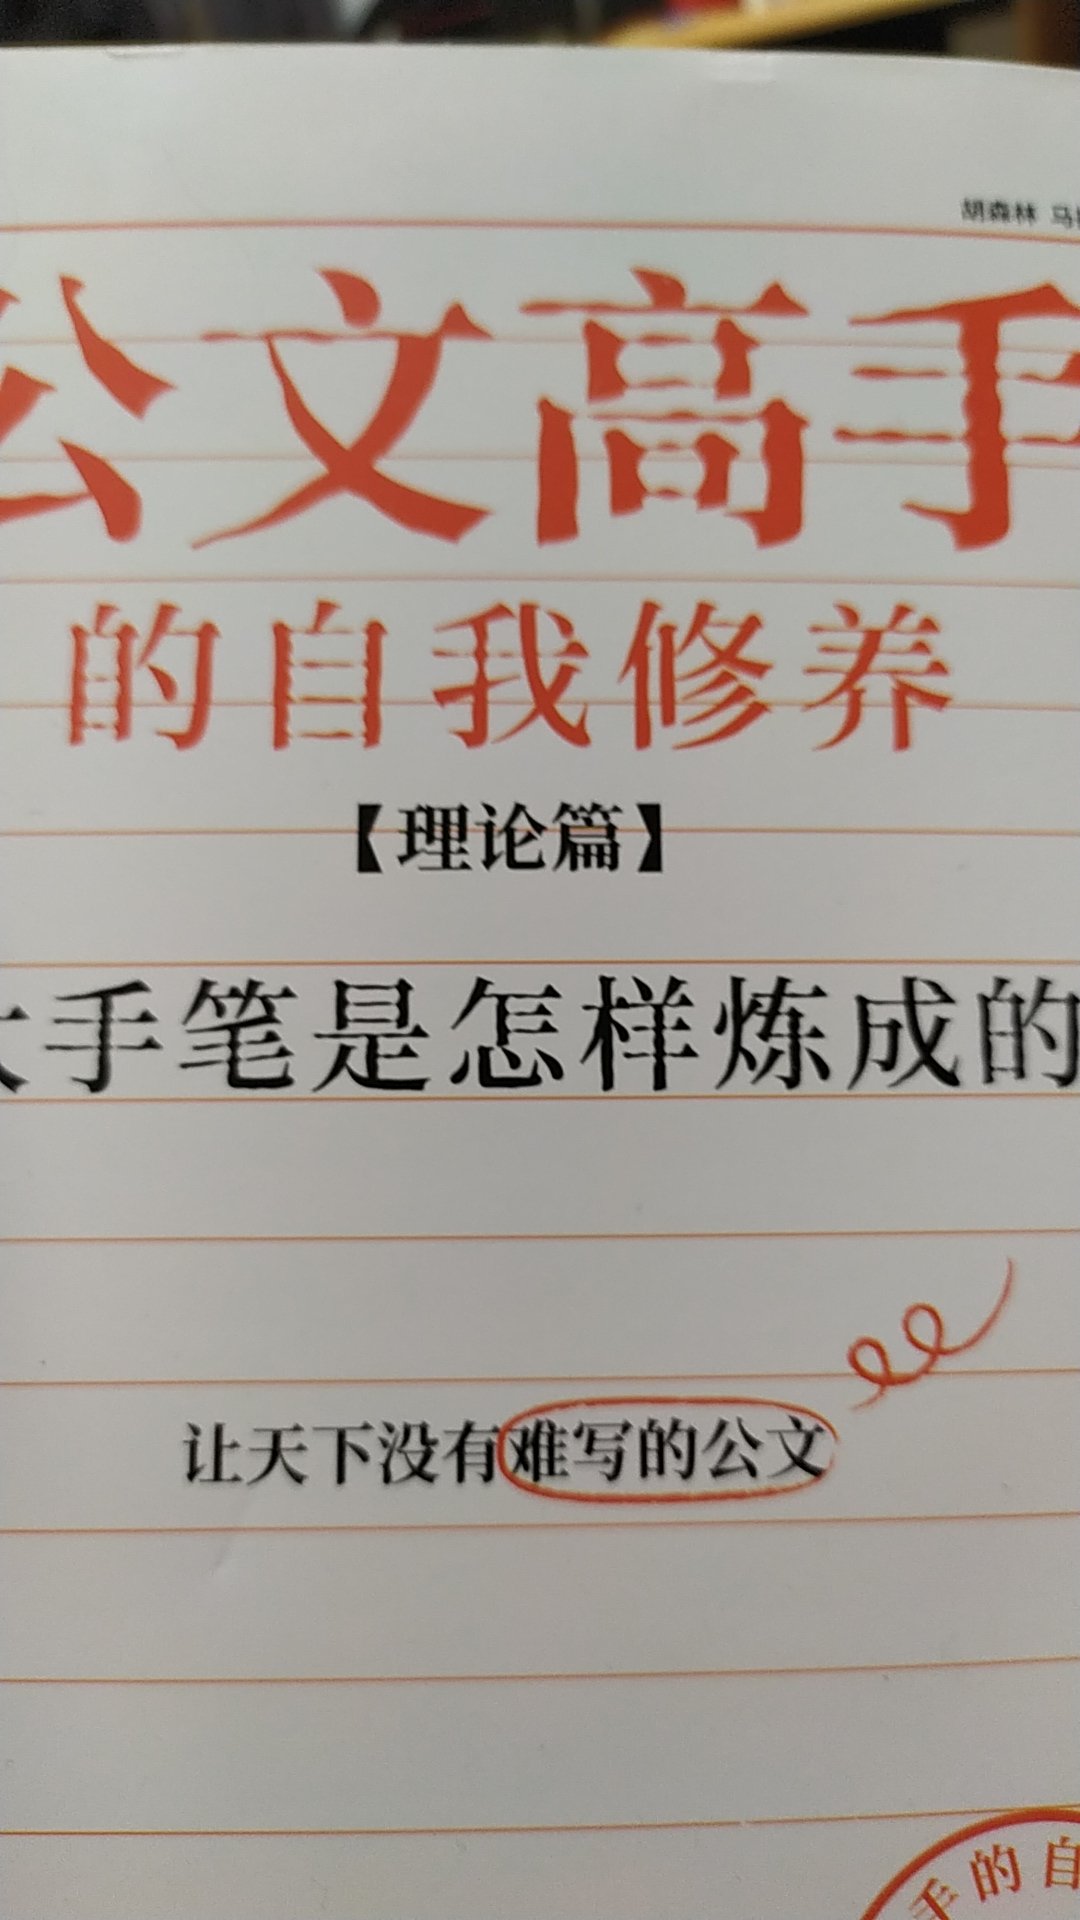 胡森林 马
公文高手
的自我修养
【理论篇】
大手笔是怎样炼成的
让天下没有难写的公文
手的自